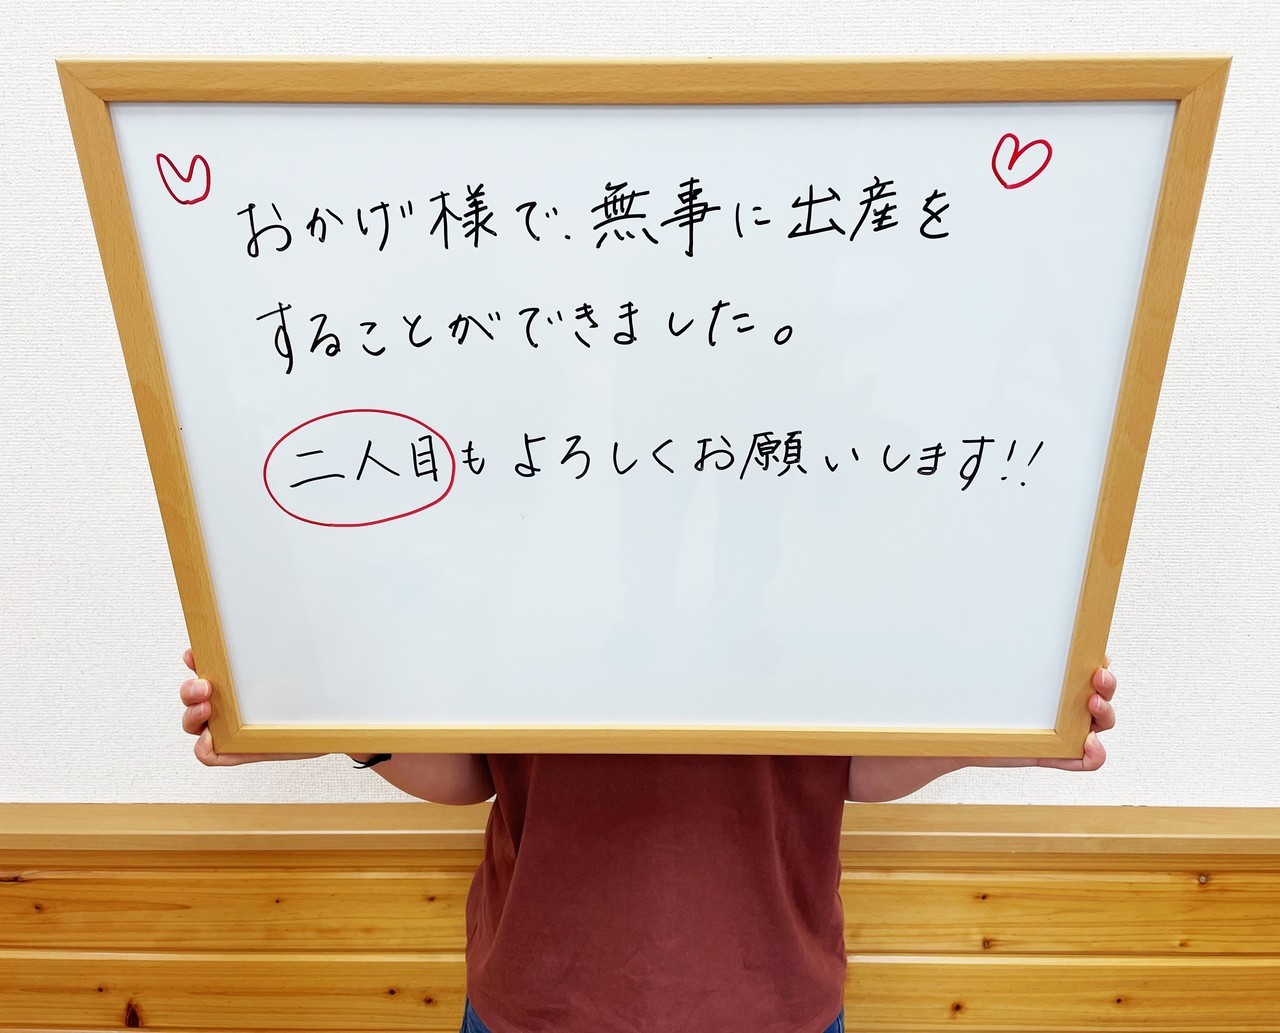 おかげ様で、無事に出産を
することができました。
二人目もよろしくお願いします!!